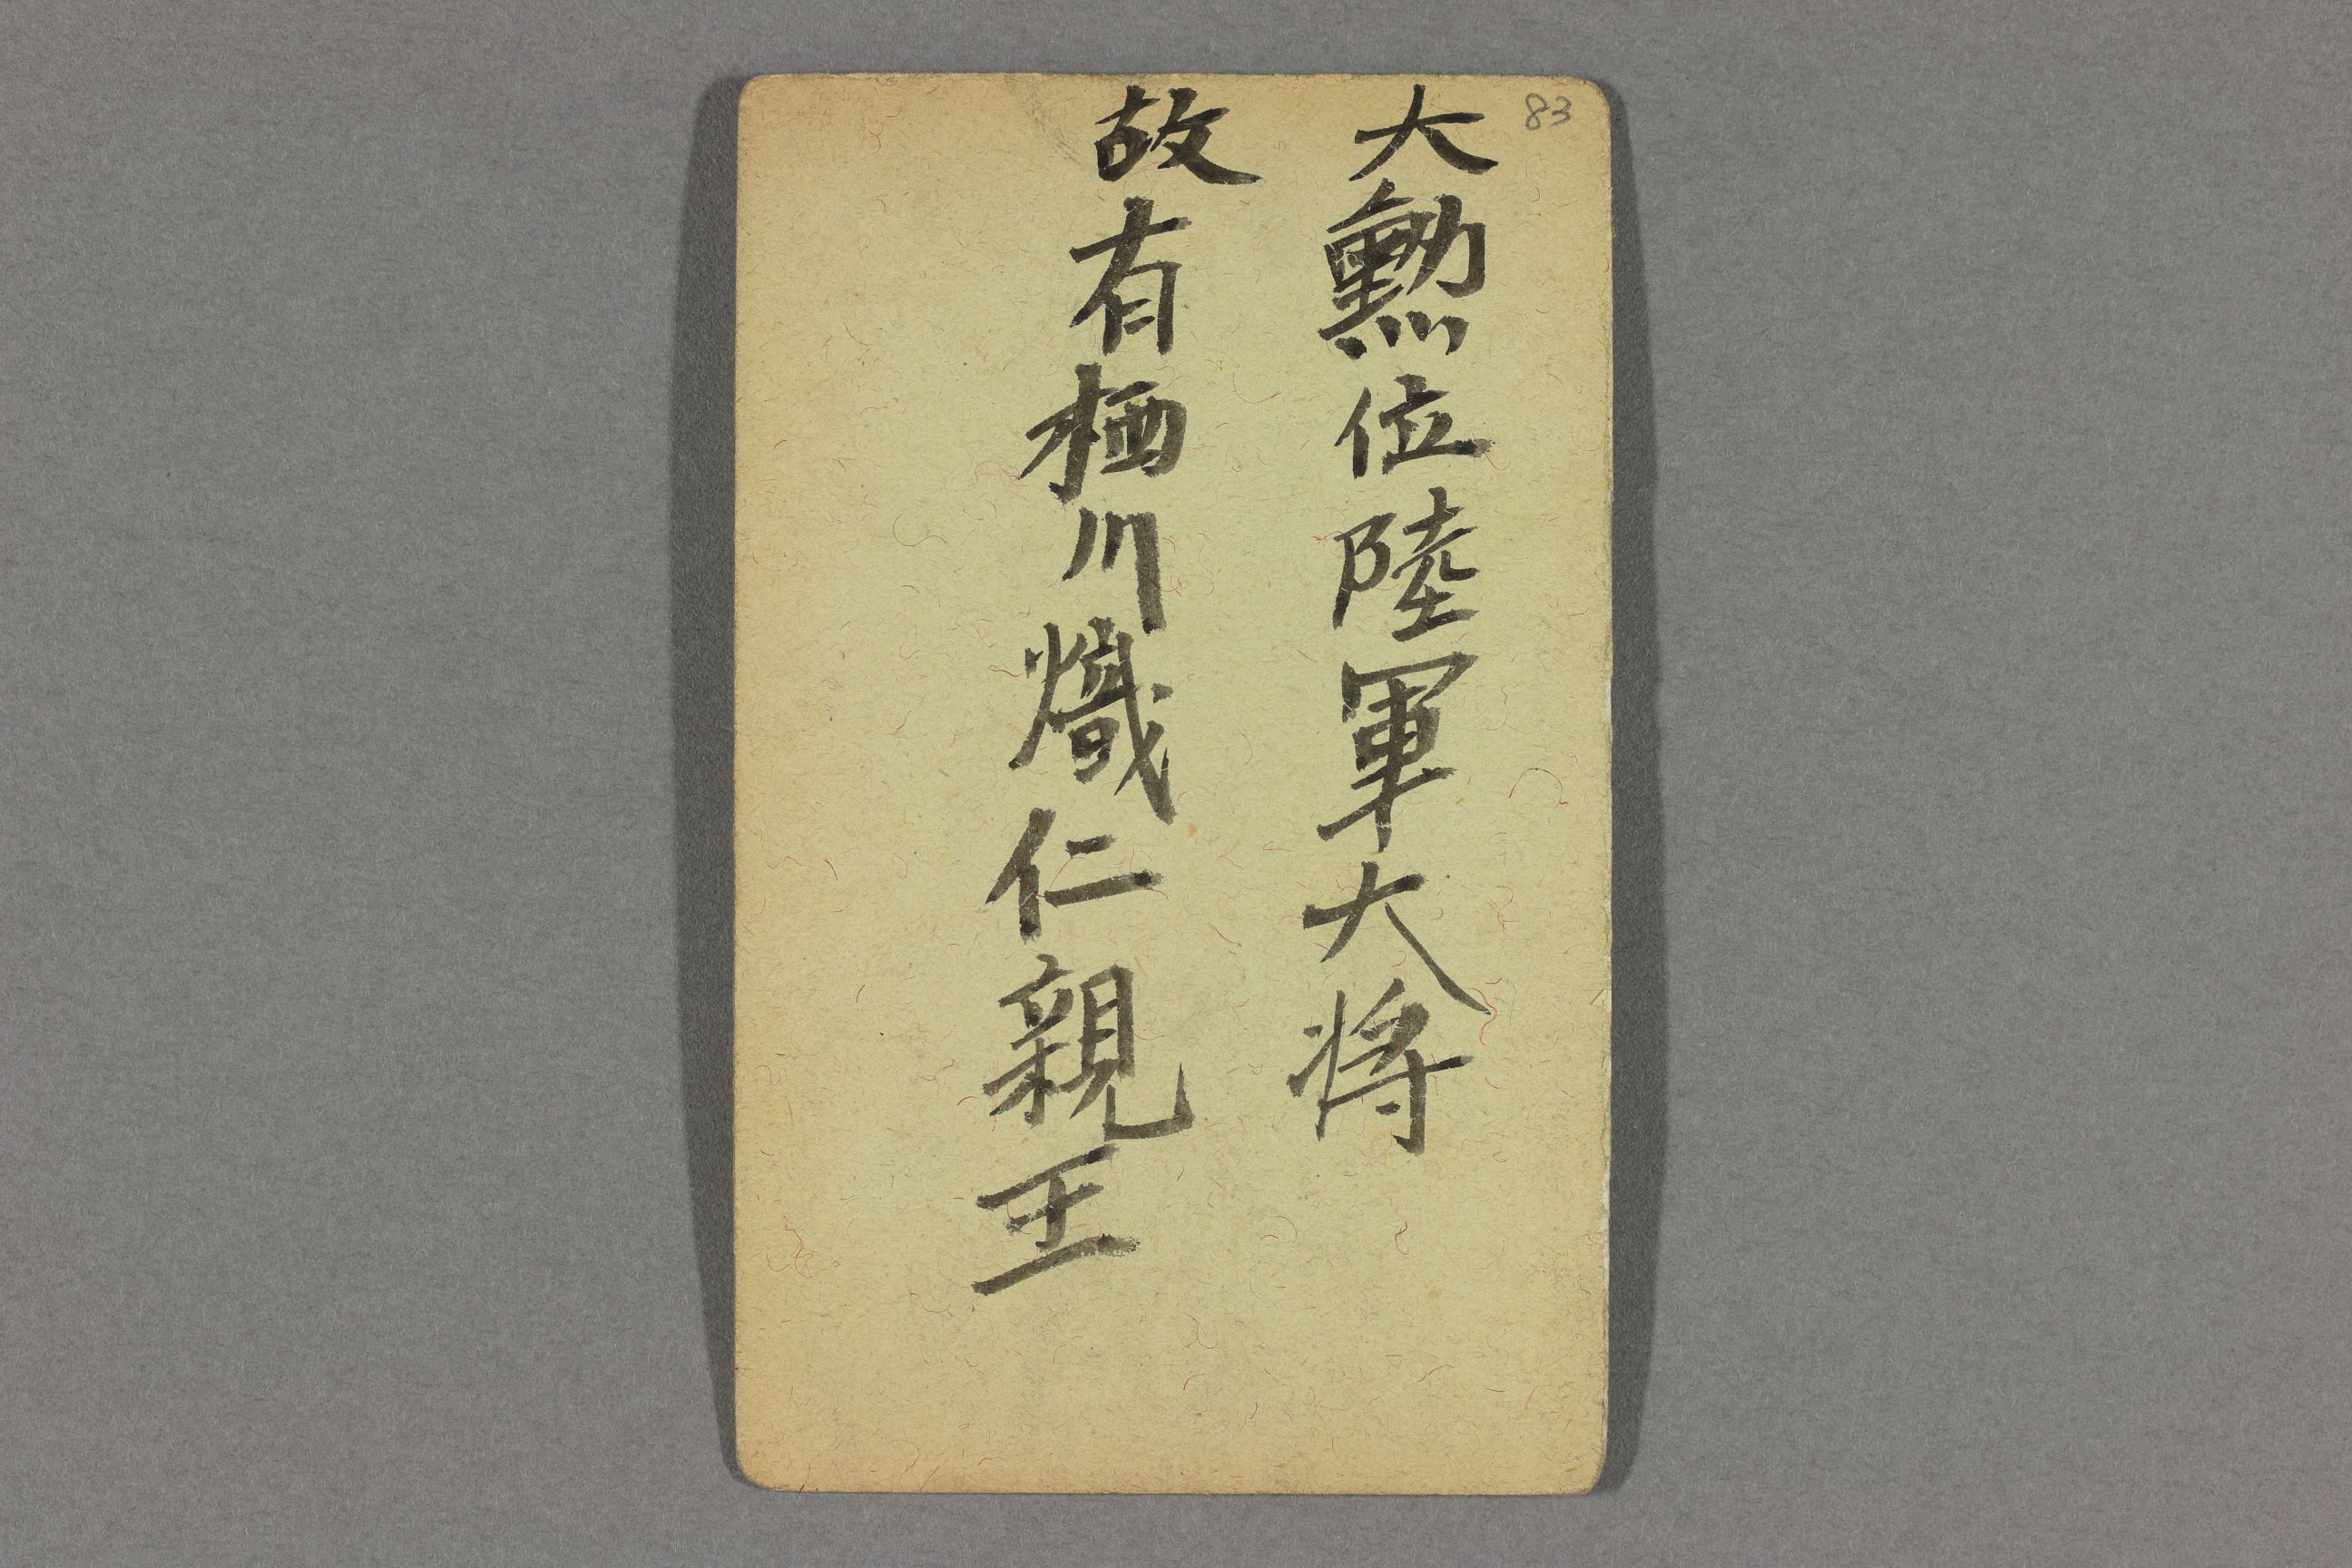 83
大勲位陸軍大将
故有栖川熾仁親王